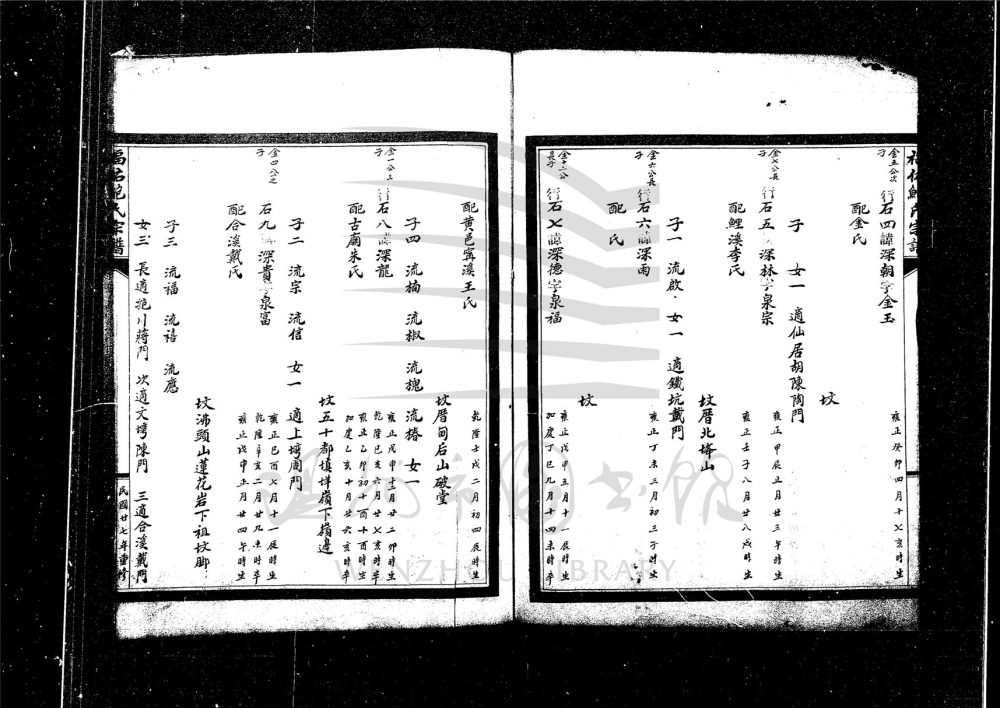 金五公次子
行石四諱深朝字金玉
雍正癸卯四月十七亥時生
配金氏
坟
子 女一 適仙居胡陳陶門
金七公長子
行石五諱深林字泉宗
雍正甲辰正月廿三午時生
配鯉溪李氏
雍正壬子八月廿八戌時生
坟厝北垟山
子一 流啟 女一 適鐵坑戴門
金六公長子
行石六諱深雨
雍正丁未三月初三子時生
配 氏
坟
金十二公長子
行石七諱深德字泉福
雍正戊申五月十一辰時生
嘉慶丁巳九月十四未時卒
配黄邑寗溪王氏
乾隆壬戌二月初四辰時生
坟厝甸后山破堂
子四 流楠 流椒 流槐 流椿 女一
金一公三子
行石八諱深龍
雍正戊申十二月廿二卯時生
乾隆己亥六月廿七亥時卒
配古廟朱氏
雍正乙卯初十酉十酉時生
嘉慶乙亥十月廿六亥時卒
坟五十都填垟嶺下嶺邊
子二 流宗 流信 女一 適上塆周門
金四公之子
石九諱深貴字泉富
雍正己酉七月十一辰時生
乾隆辛亥二月廿九未時卒
配合溪戴氏
雍正戊申正月廿四午時生
坟沸頭山蓮花岩下祖坟脚
子三 流福 流禧 流應
女三 長適抱川蔣門 次適文塆陳門 三適合溪戴門
鮑氏宗譜
民國廿七年重修
溫州市圖書館
WENZHOU LIBRARY